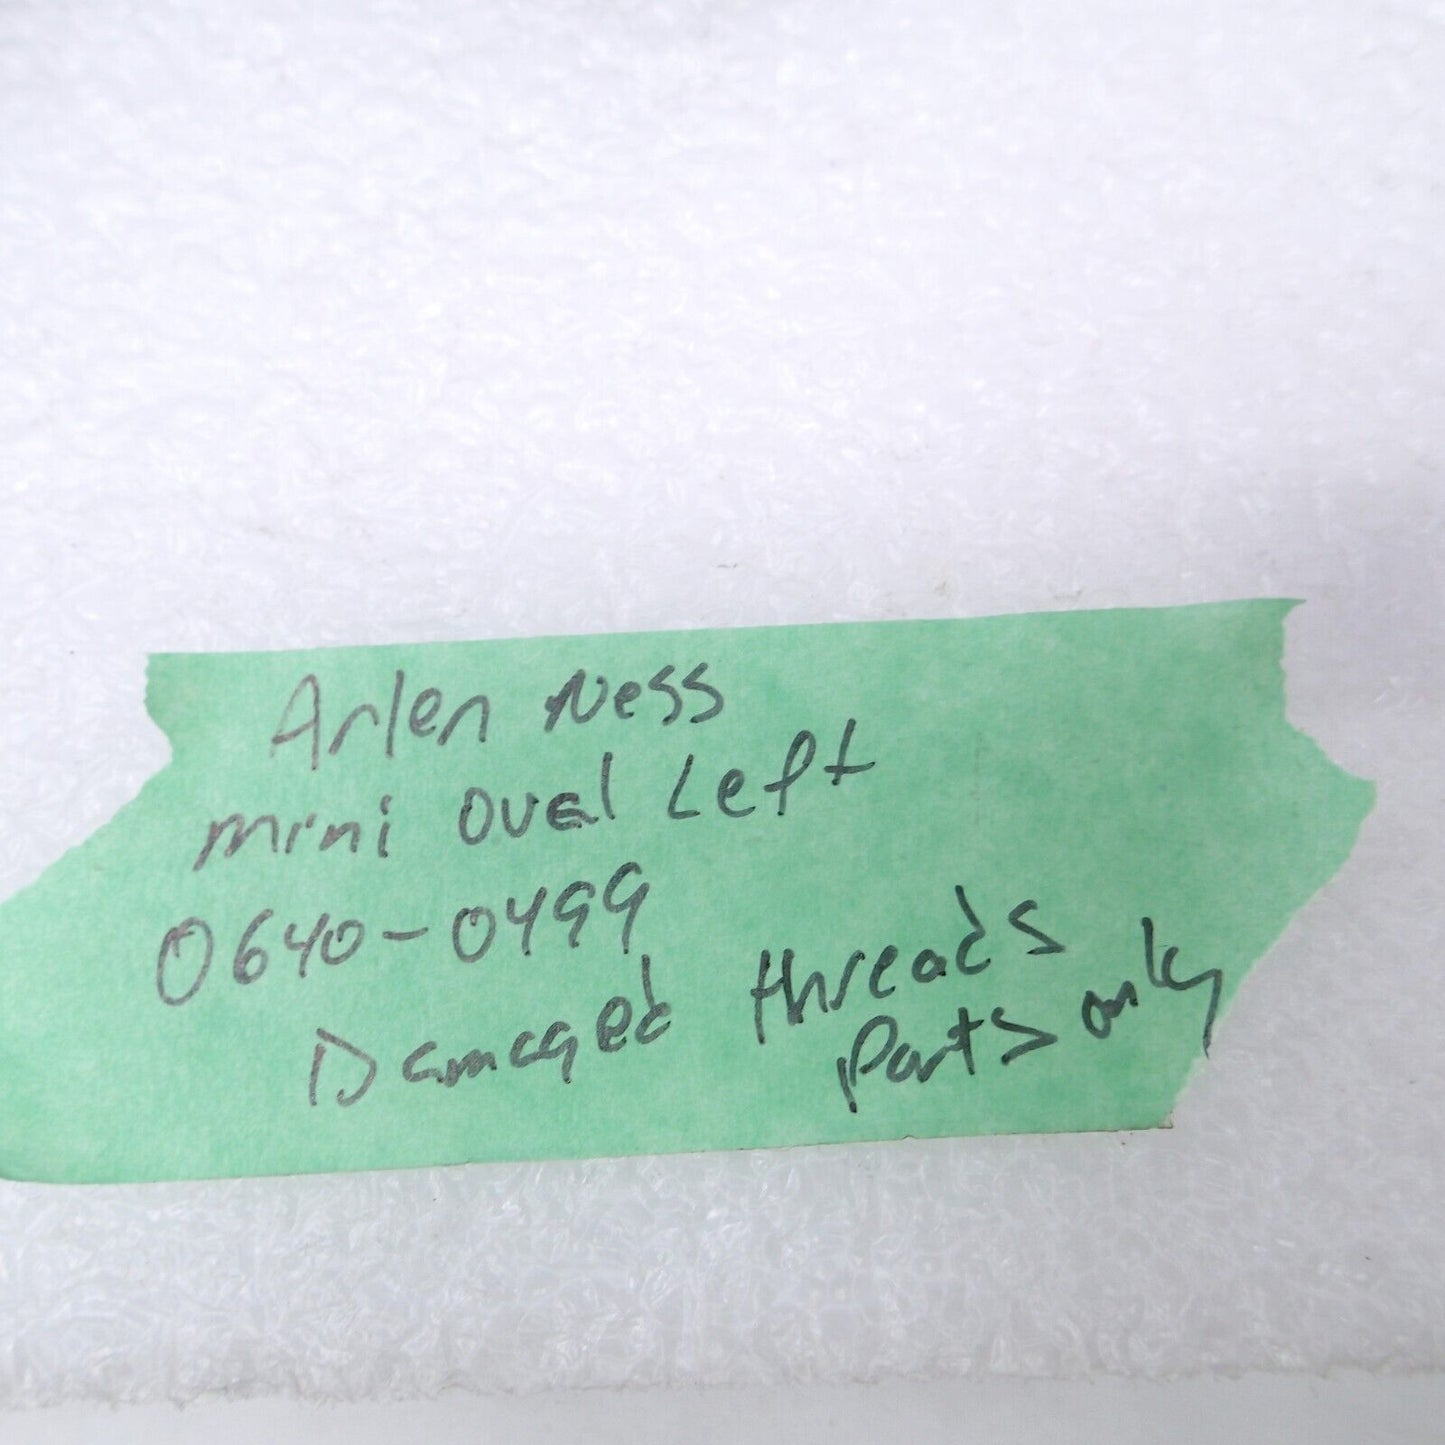 Arlen Ness
mini oval Left
0640-0499
Damaged threads
Parts only